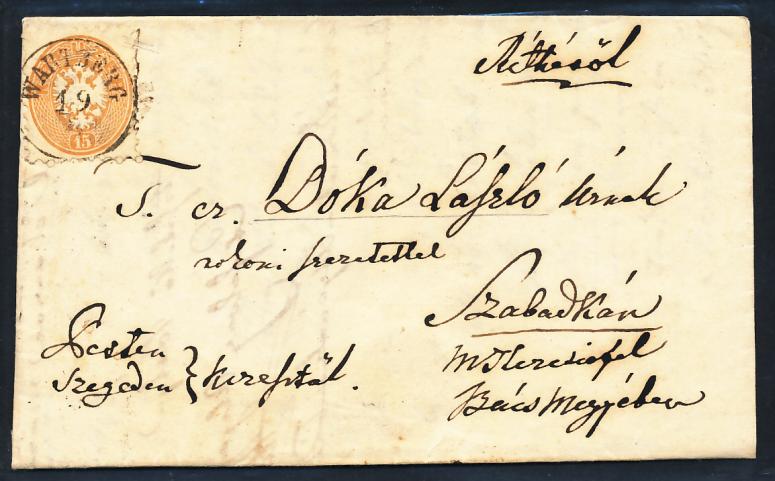 WARTBERG
19
15
T. cz. Dóka László úrnak
rokoni szeretettel
Szabadkán
Bács Megyében
Pesten
Szegeden } keresztül.